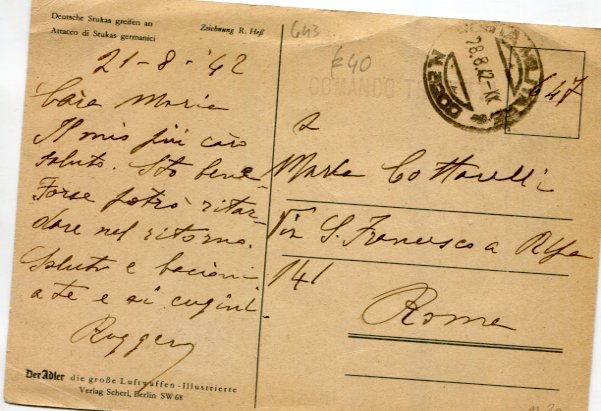 Deutsche Stukas greifen an
Attacco di Stukas germanici
Zeichnung R. Heß
643
21-8-'42
Cara Maria
Il mio più caro
saluto. Sto bene
Forse potrò ritar-
dare nel ritorno.
Saluti e bacioni
a te e ai cugini.
Ruggero
Der Adler die große Luftwaffen-Illustrierte
Verlag Scherl, Berlin SW 68
640
COMANDO
28.8.42-XX
647
a
Maria Cottarelli
Via S. Francesco a Ripa
141
Roma